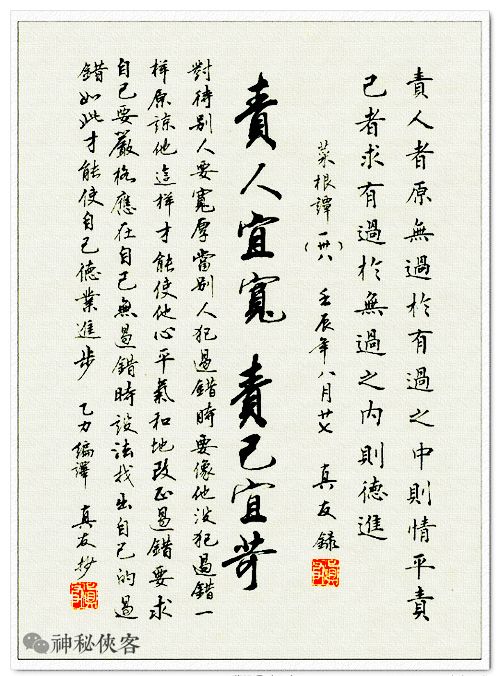 責人者原無過於有過之中則情平責
己者求有過於無過之內則德進
菜根譚(一卅八) 壬辰年八月廿七 真友錄
責人宜寬 責己宜苛
對待别人要寬厚當别人犯過錯時要像他没犯過錯一
样原諒他這樣才能使他心平氣和地改正過錯要求
自己要嚴格應在自己無過錯時設法找出自己的過
錯如此才能使自己德業進步 乙力編譯 真友抄
神秘俠客